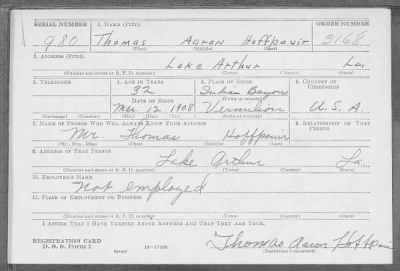 SERIAL NUMBER 1. NAME (Print) ORDER NUMBER
980 Thomas Aaron Hoffpauir 3168
(First) (Middle) (Last)
2. ADDRESS (Print)
Lake Arthur La.
(Number and street or R. F. D. number) (Town) (County) (State)
3. TELEPHONE 4. AGE IN YEARS 5. PLACE OF BIRTH 6. COUNTRY OF CITIZENSHIP
32 Indian Bayou
DATE OF BIRTH (Town or county)
Mar. 12 1908 Vermilion U. S. A.
(Exchange) (Number) (Mo.) (Day) (Yr.) (State or country)
7. NAME OF PERSON WHO WILL ALWAYS KNOW YOUR ADDRESS 8. RELATIONSHIP OF THAT PERSON
Mr. Thomas Hoffpauir
(Mr., Mrs., Miss) (First) (Middle) (Last)
9. ADDRESS OF THAT PERSON
Lake Arthur La.
(Number and street or R. F. D. number) (Town) (County) (State)
10. EMPLOYER'S NAME
Not employed
11. PLACE OF EMPLOYMENT OR BUSINESS
(Number and street or R. F. D. number) (Town) (County) (State)
I AFFIRM THAT I HAVE VERIFIED ABOVE ANSWERS AND THAT THEY ARE TRUE.
REGISTRATION CARD
D. S. S. Form 1 (over) 16—17105 Thomas Aaron Hoffpauir
(Registrant's signature)